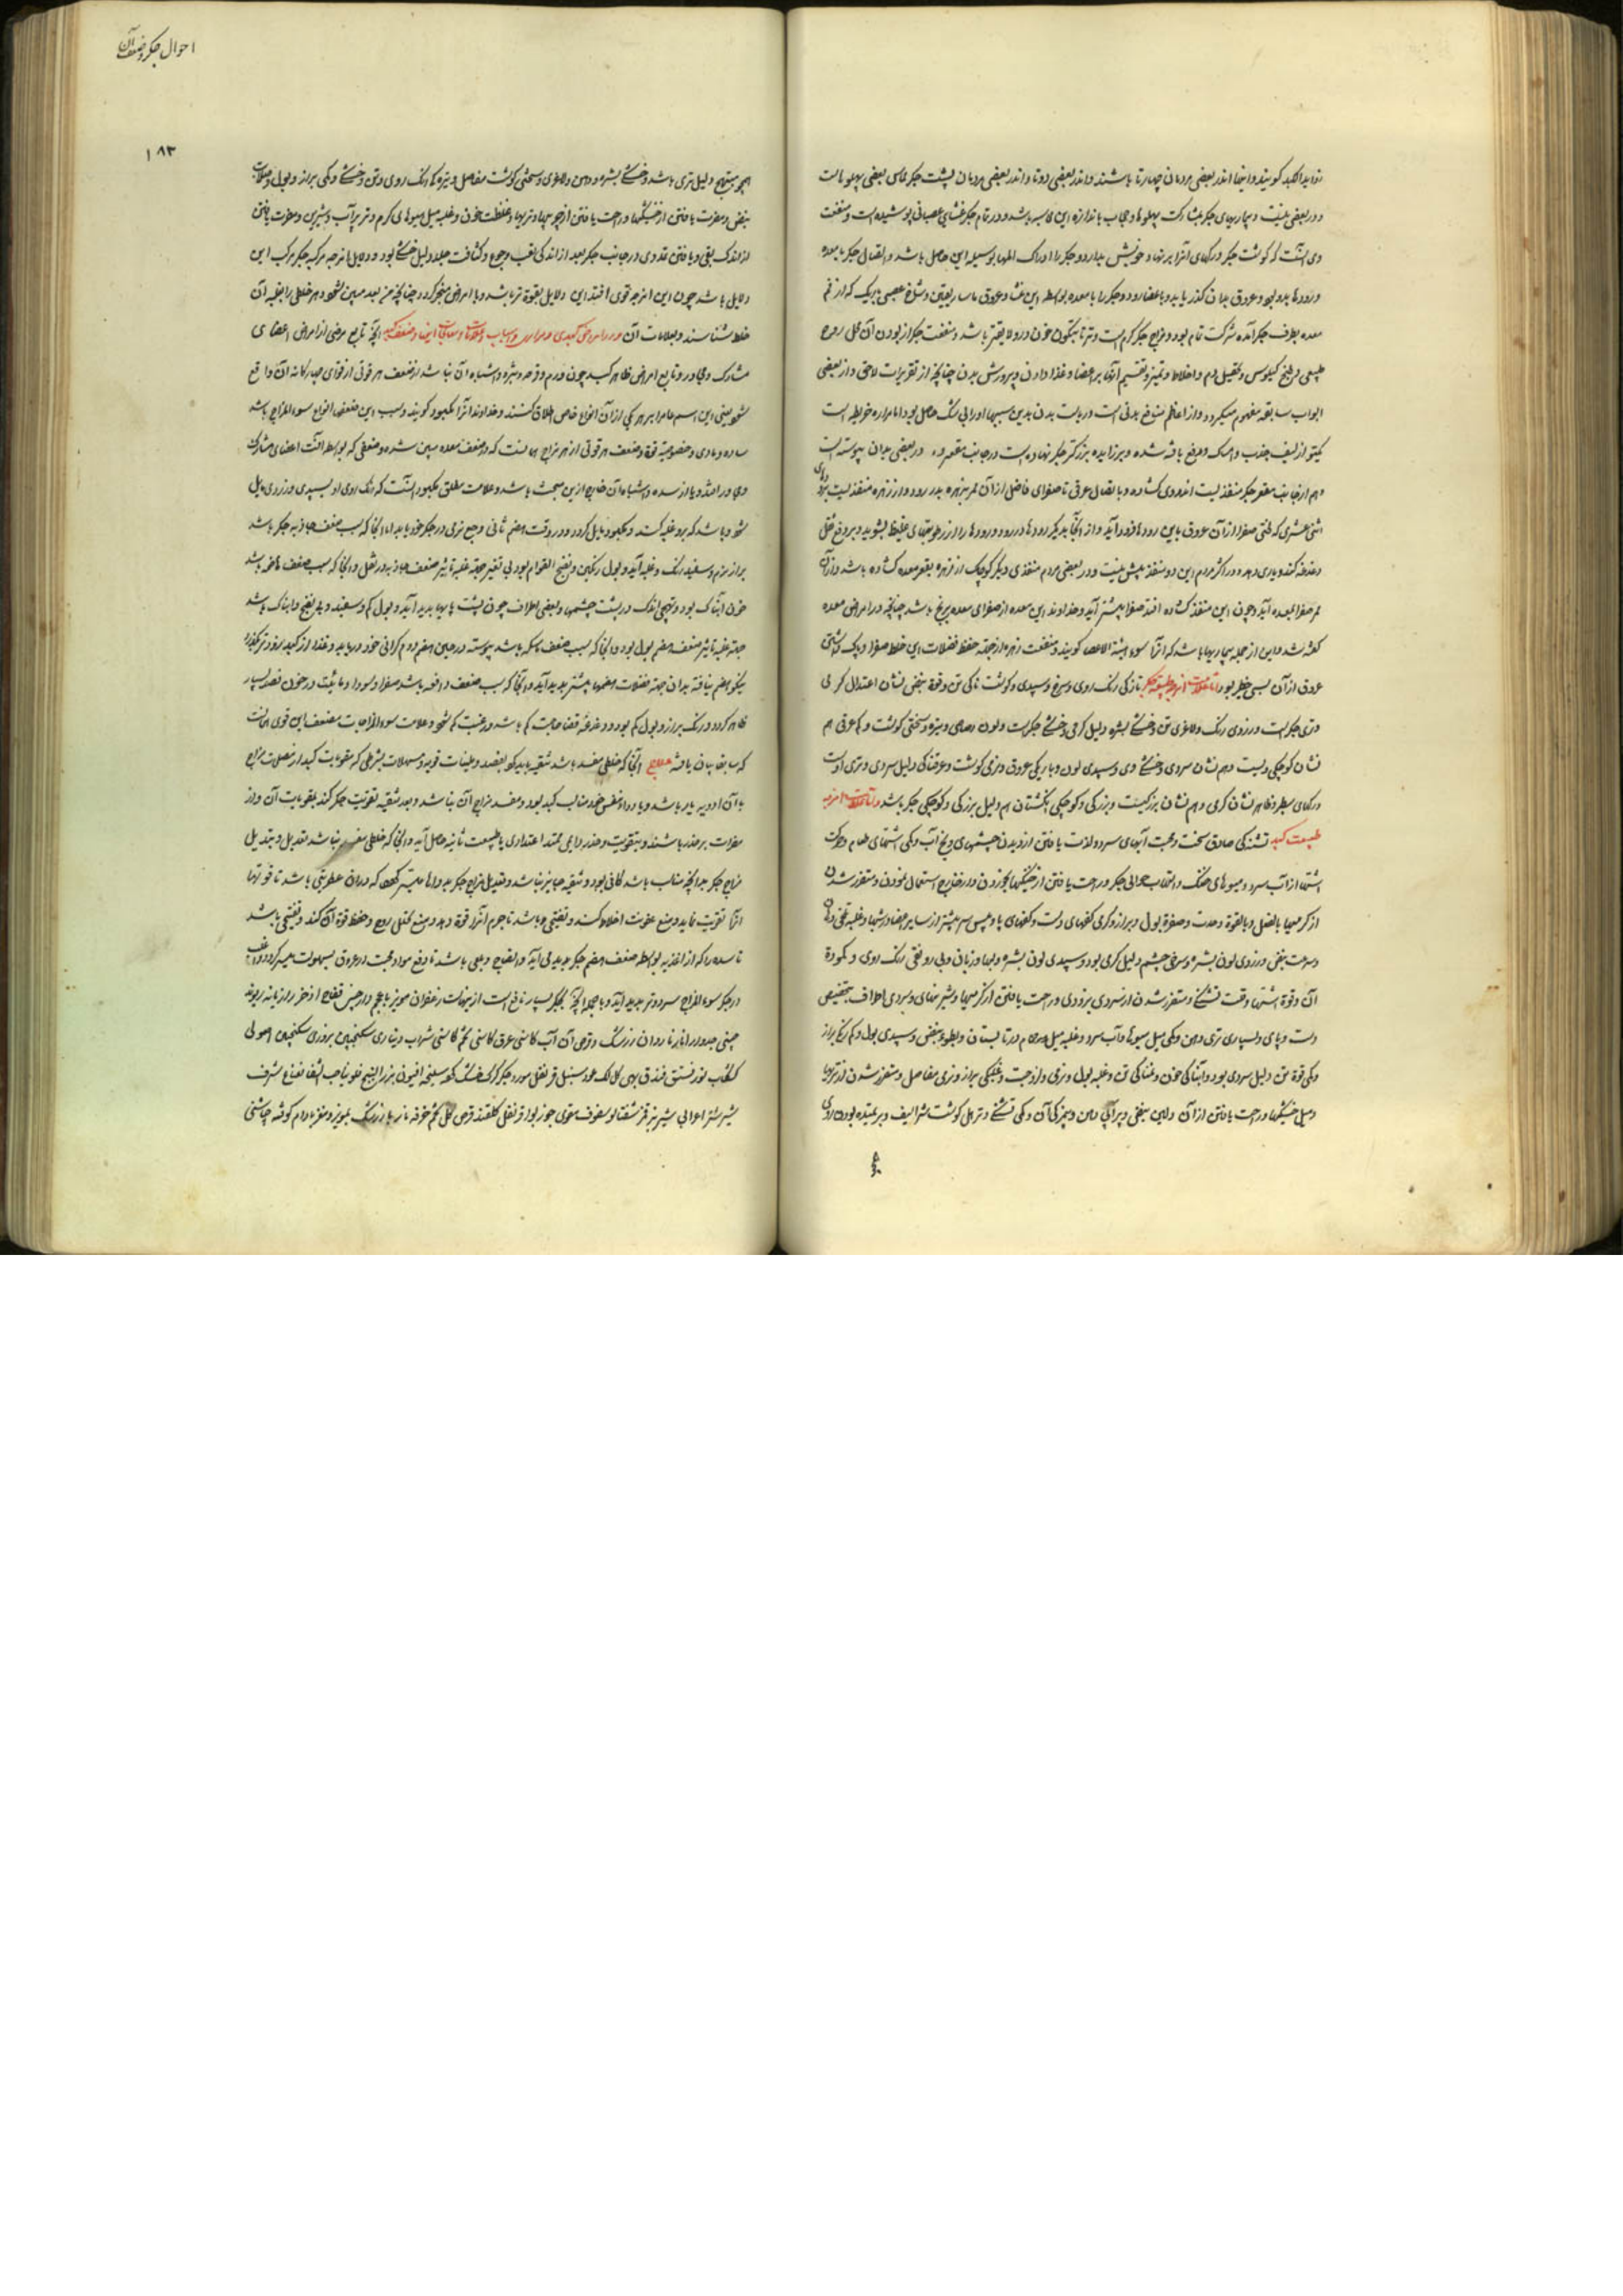 زواید اکلید کویند و اینها اندر بعضی مردمان چهارتا باشند و اندر بعضی دوتا و اندر بعضی مردمان پشت جکر مماس بعضی پهلوهاست
و در بعضی نیست و بیماریهای جکر بمشارکت پهلوها و حجاب باندازه این مماسه باشد و در تمام جکر غشایی عصبانی پوشیده است و منفعت
وی آنست که کوشت جکر و رکهای آنرا بر نهاد خویش بدارد و جکر را ادراک المها بوسیله این حاصل باشد و اتصال جکر با معده
و رودها بدو بود و عروق بدان کذر یابد و باعضا رود و جکر را با معده بواسطه این غشا و عروق ماساریقین و شاخ عصبی باریک که از فم
معده بطرف جکر آمده شرکت تمام بود و مزاج جکر کرم است و تر تا بتکون خون درو لایقتر باشد و منفعت جکر از بودن آن محل روح
طبیعی و طبخ کیلوس و تحصیل دم و اخلاط و تمیز و تقسیم آنها بر اعضا و غذا دادن و پرورش بدن چنانچه از تقریرات لاحق و از بعضی
ابواب سابقه مفهوم میکردد و از اعظم منافع بدنی است و ریاست بدن بدین سببها او را بی شک حاصل بود اما مراره خریطه است
یکتو از لیف جذب و امساک و دفع بافته شده و بر زایده بزرکتر جکر نهاده است در جانب مقعر وی و در بعضی بدان پیوسته است
و هم از جانب مقعر جکر منفذیست اندروی کشاده و باتصال عرقی تا صفرای فاضل از آن ممر بزهره بدر رود و از زهره منفذیست برودهای
اثنی عشری که لختی صفرا از آن عروق باین رودها فرود آید و از آنجا بدیکر رودها در رود و رودها را از رطوبتهای غلیظ بشوید و بر دفع ثفل
دغدغه کند و یاری دهد و در اکثر مردم این دو منفذ بیش نیست و در بعضی مردم منفذی دیکر کوچک از زهره بقعر معده کشاده باشد و از آن
ممر صفرا بمعده آید و چون این منفذ کشاده افتد صفرا بیشتر آید و خداوند این معده از صفرای معده برنج باشد چنانچه در امراض معده
کفته شد و این از جمله بیماریها باشد که آنرا سوء هیئة الاعضا کویند و منفعت زهره از جهة حفظ فضلات این خلط صفرا و پاک داشتن
عروق از آن بسی خطیر بود اما علامت امزجه طبیعیه جکر تازکی رنک روی و سرخ و سپیدی و کوشت ناکی تن و قوة نبض نشان اعتدال کرمی
و تری جکر است و زردی رنک و لاغری تن و خشکی بشره دلیل کرمی و خشکی جکر است و لون رصاصی و تیره و سختی کوشت و کم عرقی هم
نشان کوچکی ویست و هم نشان سردی و خشکی وی و سپیدی لون و باریکی عروق و نرمی کوشت و عرقناکی دلیل سردی و تری اوست
و رکهای سطبر و ظاهر نشان کرمی و هم نشان بزرکیست و بزرکی و کوچکی انکشتان هم دلیل بزرکی و کوچکی جکر باشد و اما علامت امزجه
طبیعت کبد تشنکی صادق سخت و محبت آبهای سرد و لذت یافتن از دیدن چشمهای و یخ آب و کمی اشتهای طعام و حرکت
اشتها از آب سرد و میوهای خنک و التهاب حوالی جکر و راحت یافتن از خنکیها بخوردن و از خارج استعمال نمودن و متضرر شدن
از کرمیها بالفعل و بالقوة و حدت و صفرة بول و براز و کرمی کفهای دست و کفهای پا و پس سر بیشتر از سایر اعضا در تبها و غلبه تلخی دهان
و سرعت نبض و زردی لون بشره و سرخی چشم دلیل کرمی بود و سپیدی لون بشره و لبها و زبان و بی رونقی رنک روی و کمودة
آن و قوة اشتها و قلت تشنکی و متضرر شدن از سردی بزودی و راحت یافتن از کرمیها و شیرینهای و سردی اطراف بتخصیص
دست و پای و بسیاری تری دهن و کمی میل میوها و آب سرد و غلبه میل بحمام در تابستان و بطوء نبض و سپیدی بول و کم رنکی براز
و کمی قوة تن دلیل سردی بود و آبناکی خون و نمناکی تن و غلبه بول و نرمی و لزوجت و غلیظی براز و نرمی مفاصل و متضرر شدن از تریها
و میل خشکیها و راحت یافتن از آن و لین نبض و پر آبی دهن و بیمزکی آن و کمی تشنکی و ترهل کوشت شراسیف و بر تمیده بودن روی
احوال جکر و ضعف آن
۱۸۳
همچو متهبج دلیل تری باشد و خشکی بشره و دهن و لاغری و سختی کوشت مفاصل و تیره کی رنک روی و تن و خشکی و کمی براز و بول و صلابت
نبض و مضرت یافتن از خشکیها و راحت یافتن از چربیها و تریها و غلظت خون و غلبه میل میوهای کرم و تر پر آب و شیرین و مضرت یافتن
از اندک بقی و یافتن تمددی در جانب جکر بعد از اندکی تعب و جوع و کثافت جلد دلیل خشکی بود و دلایل امزجه مرکبه جکر مرکب این
دلایل باشد چون این امزجه قوی افتد این دلایل بقوة تر باشد و با امراض منجر کردد چنانچه من بعد مبین شود و هر خلطی را بغلبه آن
خلط شناسند و بعلامات آن در امراض کبدی و مراری و اسباب و علامات و معالجات اینها و ضعف کبد آنچه تابع مرضی از امراض اعضای
مشارک و مجاور و تابع امراض ظاهر کبد چون ورم و قرحه و بثره و اشباه آن نباشد از ضعف هر قوتی از قوای چهارکانه آن واقع
شود یعنی این اسم عام را بر هر یکی از آن انواع خاص اطلاق کنند و خداوند آنرا مکبود کویند و سبب این ضعفها انواع سوء المزاج باشد
ساده و مادی و خصوصیة قوة و ضعف هر قوتی از هر مزاجی هانست که در ضعف معده مبین شده و ضعفی که بواسطه آفت اعضای مشارک
وی در افتد و یا از سده و اشباه آن خارج ازین مبحث باشد و علامت مطلق مکبود آنست که رنک روی او بسپیدی و زردی مایل
شود و باشد که برو غلبه کند و بکمود مایل کردد و در وقت هضم ثانی وجع نرمی در جکر خود یابد اما آنجا که سبب ضعف جاذبه جکر باشد
براز نرم و سفید رنک و غلبه آید و بول رنکین و نضج القوام بود بی تغیر جهة غلبه تاثیر ضعف جاذبه در ثفل و آنجا که سبب ضعف هاضمه باشد
خون آبناک بود و تهبجی اندک در پشت چشمها و بعضی اطراف چون پشت پایها پدید آید و بول کم و سفید و بی نضج و آبناک باشد
جهة غلبه تاثیر ضعف هضم بول بود و آنجا که سبب ضعف ماسکه باشد پیوسته در حین هضم دوم کرانی خود دریابد و غذا از کبد زودتر بکذرد
نیکو هضم نیافته بدان جهة فضلات هضمها بیشتر پدید آید و آنجا که سبب ضعف دافعه باشد صفرا و سودا و مائیت در خون قصد بسیار
ظاهر کردد و رنک براز و بول کم بود و دغدغه قضا حاجت کم باشد و رغبت کم شود و علامت سوء المزاجات مضعف این قوی هانست
که سابقا بیان یافته علاج آنجا که خلطی مفسد باشد تنقیه باید کرد بفصد و ملینات قویه و مسهلات بشرطی که مقویات کبد از مصلحت مزاج
با آن ادویه یار باشد و یا دواء نفس خود مناسب کبد بود و مفسد مزاج آن نباشد و بعد تنقیه تقویت جکر کند بمقویات آن و از
مضرات برحذر باشند و بتقویت و حذر دایمی ممتد اعتدادی یا طبیعت ثانیه حاصل آید و آنجا که خلطی مفسد نباشد تعدیل و تبدیل
مزاج جکر بدانچه مناسب باشد کافی بود و تنقیه جایز نباشد و تعدیل مزاج جکر بدواها میسر کردد که در آن عطریتی باشد تا قوتها
آنرا تقویت نماید و منع عفونت اخلاط کند و تقبضی هم باشد تا جرم آنرا قوة دهد و منع تحلل روح و حفظ قوة آن کند و تفتیحی باشد
تا سده را که از اغذیه بواسطه ضعف هضم جکر پدید می آید و انضاج و جلی باشد تا دفع مواد محبت در عروق بسهولت میسر کردد و اغلب
در جکر سوء المزاج سرد و تر پدید آید و بالجمله آنچه بجکر بسیار نافع است از بهانت زعفران مویز با عجم دارچینی فقاح اذخر رازیانه ریوند
چینی جدوار انار ناردان زرشک و قرص آن آب کاسنی عرق کاسنی تخم کاسنی شراب دیناری سکنجبین بزوری سکنجبین اصولی
کلاب نور فستق فندق بهی کل لک عود سنبل قرنفل مورد جکر کرک خشک کرده سلیخه افیون بزر البنج فلونیا حب الشفا نعناع شرف
شیر شتر اعرابی شیر بز قرز شفتالو سفوف مقوی جوز بوا قرنفل کلقند قرص کل تخم خرفه نار با زرشک بمویز و مغز بادام کوفته چاشنی